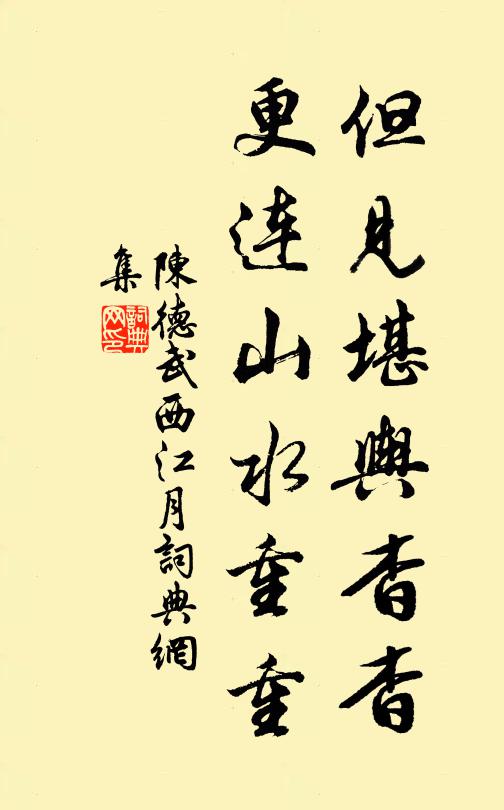 但見堪輿杳杳
更連山水重重
陳德武西江月詞典網
集
詞典
网印